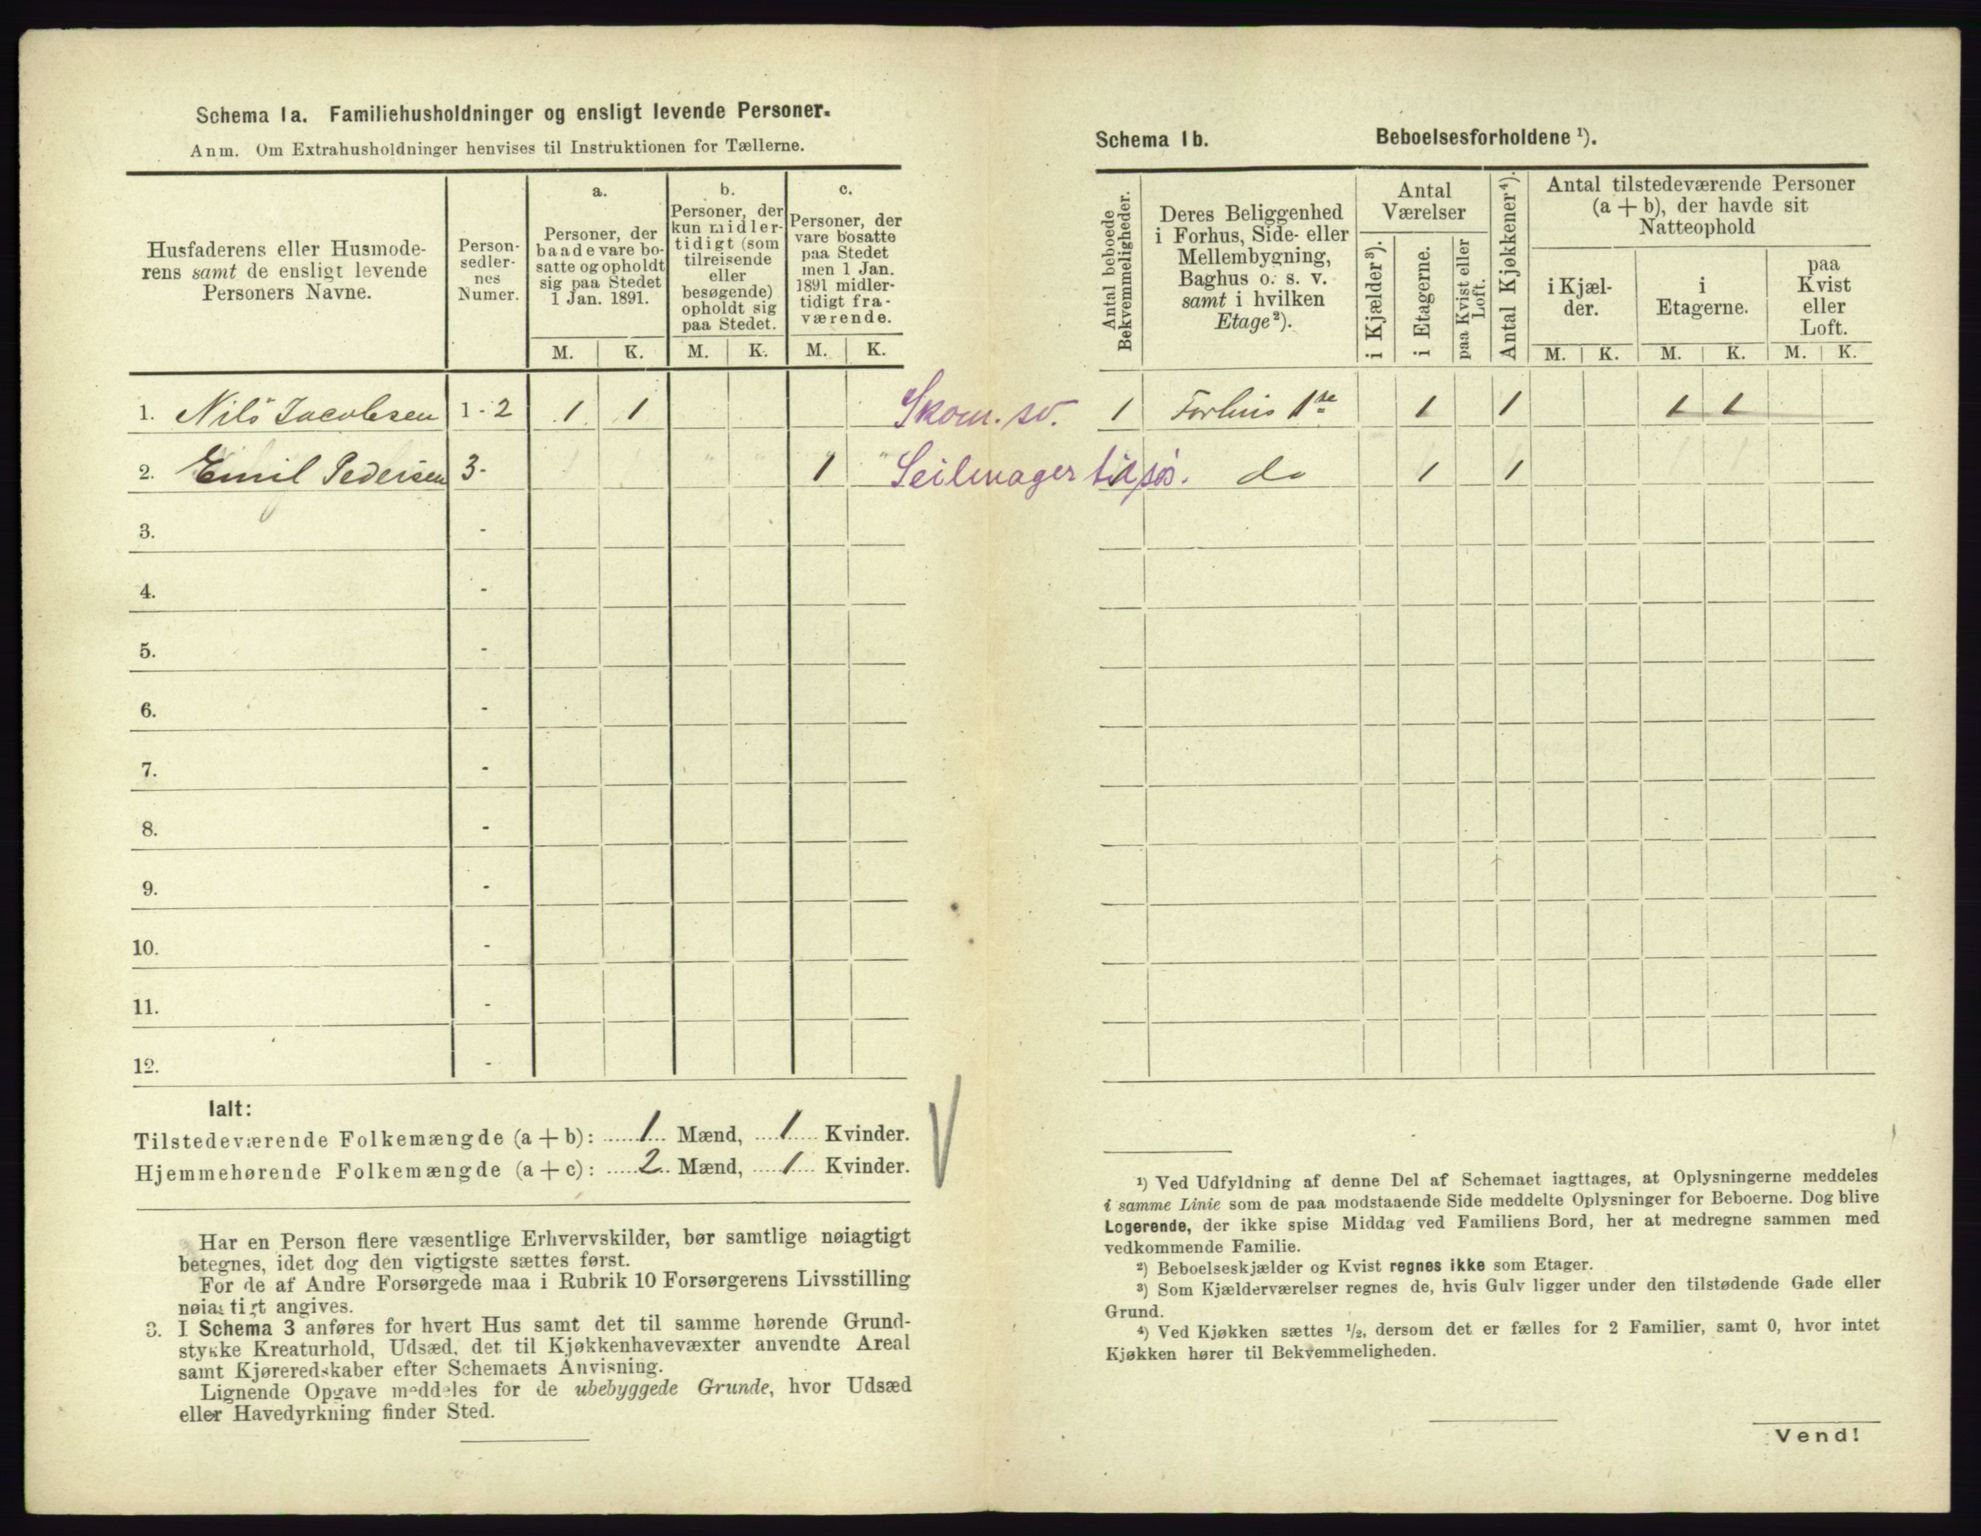 Schema 1a. Familiehusholdninger og ensligt levende Personer.
Anm. Om Extrahusholdninger henvises til Instruktionen for Tællerne.
Husfaderens eller Husmode-
rens samt de ensligt levende
Personers Navne.
Person-
sedler-
nes
Numer.
a.
Personer, der
baade vare bo-
satte og opholdt
sig paa Stedet
1 Jan. 1891.
b.
Personer, der
kun midler-
tidigt (som
tilreisende
eller
besøgende)
opholdt sig
paa Stedet.
c.
Personer, der
vare bosatte
paa Stedet
men 1 Jan.
1891 midler-
tidigt fra-
værende.
M. K. M. K. M. K.
1. Nils Jacobsen 1 - 2 1 1 Skom. sv.
2. Emil Pedersen 3 - 1 Seilmager tilsøs.
3. -
4. -
5. -
6. -
7. -
8. -
9. -
10. -
11. -
12. -
Ialt:
Tilstedeværende Folkemængde (a + b): 1 Mænd, 1 Kvinder.
Hjemmehørende Folkemængde (a + c): 2 Mænd, 1 Kvinder.
Har en Person flere væsentlige Erhvervskilder, bør samtlige nøiagtigt
betegnes, idet dog den vigtigste sættes først.
For de af Andre Forsørgede maa i Rubrik 10 Forsørgerens Livsstilling
nøiagtigt angives.
3. I Schema 3 anføres for hvert Hus samt det til samme hørende Grund-
stykke Kreaturhold, Udsæd, det til Kjøkkenhavevæxter anvendte Areal
samt Kjøreredskaber efter Schemaets Anvisning.
Lignende Opgave meddeles for de ubebyggede Grunde, hvor Udsæd
eller Havedyrkning finder Sted.
Schema 1b. Beboelsesforholdene ¹).
Antal beboede
Bekvemmeligheder.
Deres Beliggenhed
i Forhus, Side- eller
Mellembygning,
Baghus o. s. v.
samt i hvilken
Etage²).
Antal
Værelser
i Kjælder³).
i Etagerne.
paa Kvist eller
Loft.
Antal Kjøkkener⁴).
Antal tilstedeværende Personer
(a + b), der havde sit
Natteophold
i Kjæl-
der.
i
Etagerne.
paa
Kvist
eller
Loft.
M. K. M. K. M. K.
1 Forhus 1ste 1 1 1 1
1 do 1 1
¹) Ved Udfyldning af denne Del af Schemaet iagttages, at Oplysningerne meddeles
i samme Linie som de paa modstaaende Side meddelte Oplysninger for Beboerne. Dog blive
Logerende, der ikke spise Middag ved Familiens Bord, her at medregne sammen med
vedkommende Familie.
²) Beboelseskjælder og Kvist regnes ikke som Etager.
³) Som Kjælderværelser regnes de, hvis Gulv ligger under den tilstødende Gade eller
Grund.
⁴) Ved Kjøkken sættes ½, dersom det er fælles for 2 Familier, samt 0, hvor intet
Kjøkken hører til Bekvemmeligheden.
Vend!